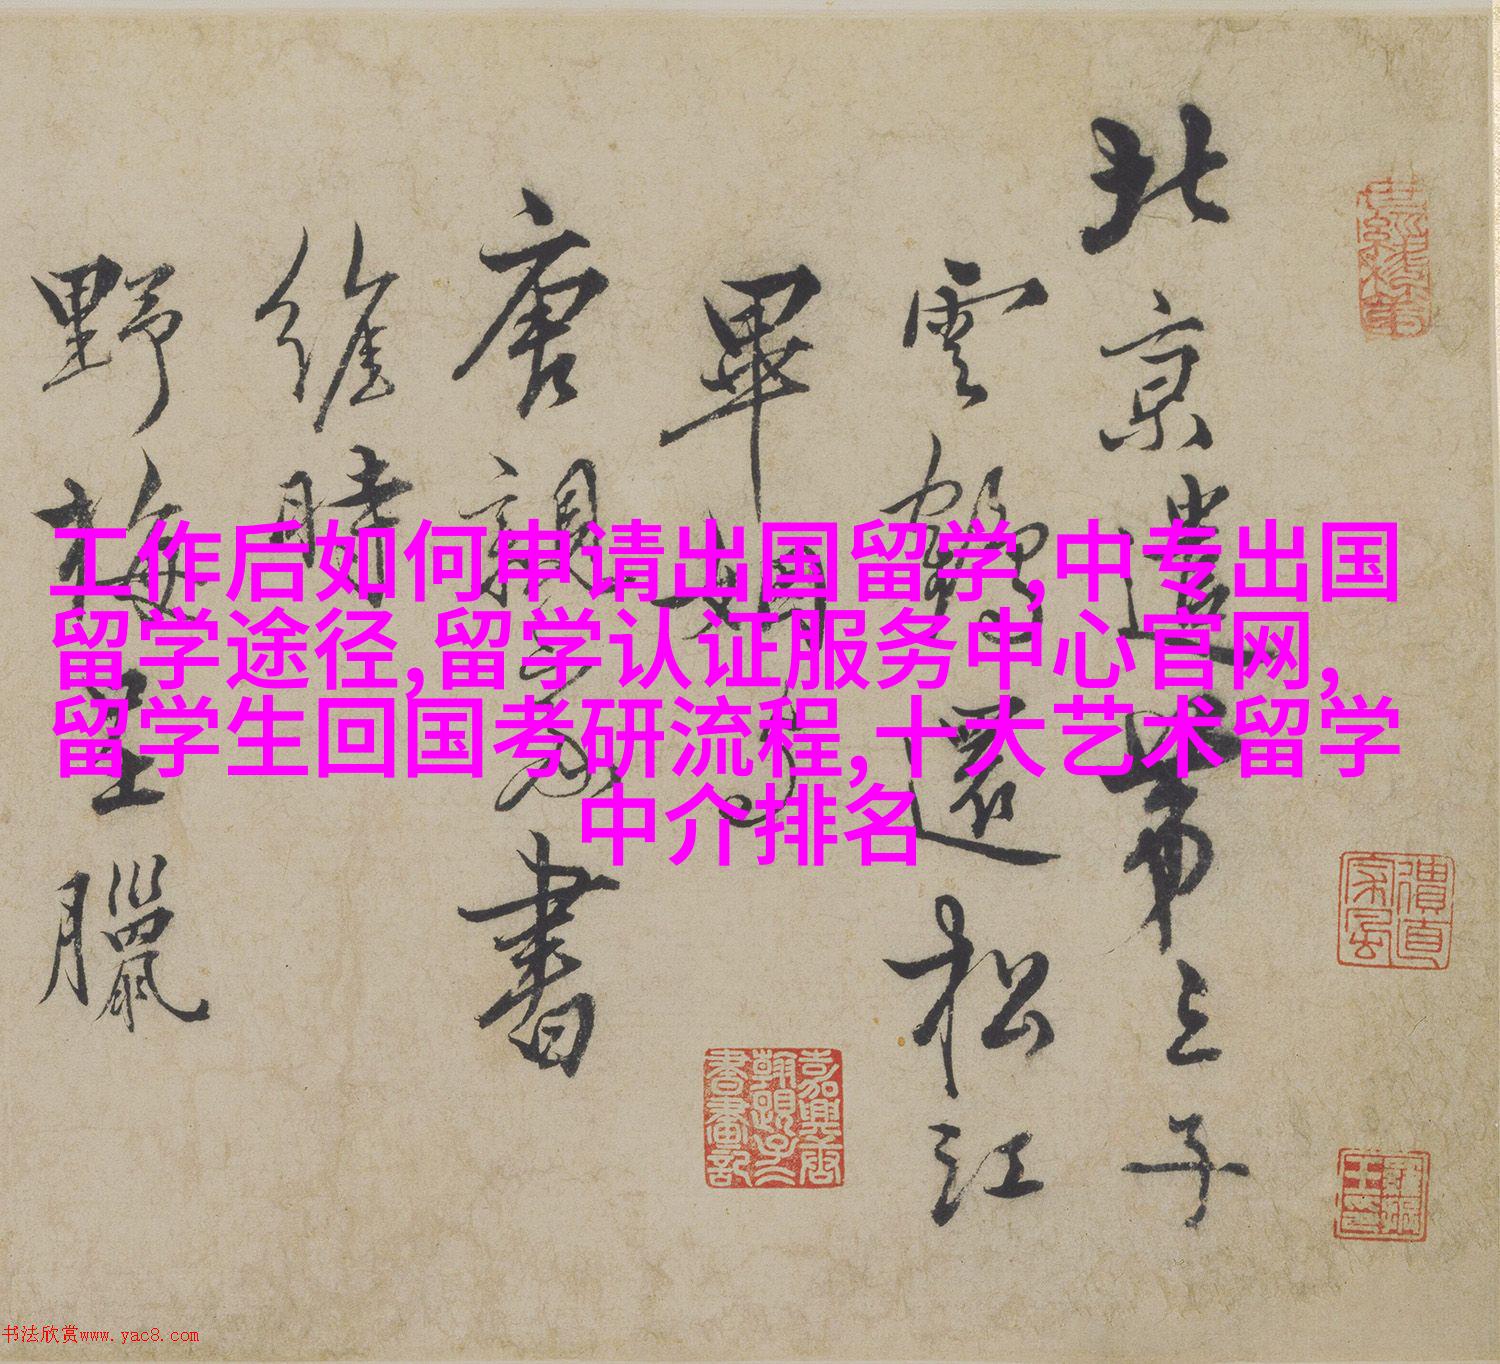 工作后如何申请出国留学,中专出国
留学途径,留学认证服务中心官网,
留学生回国考研流程,十大艺术留学
中介排名
北京遣第三子
雲鶴還松江
畢姻
唐親家書
維時
野梅呈臘
书法欣赏www.yac8.com